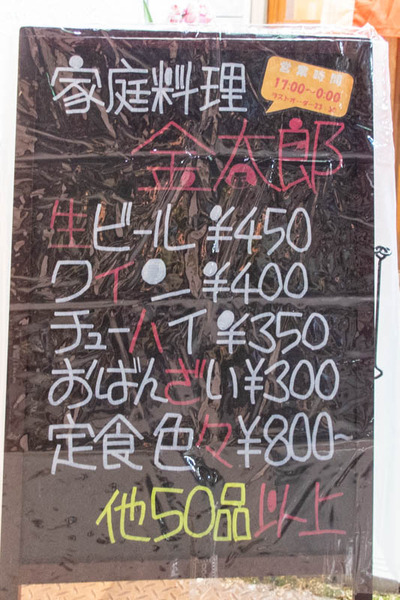 家庭料理
営業時間
17:00〜0:00
ラストオーダー23:
金太郎
生ビール ¥450
ワイン ¥400
チューハイ ¥350
おばんざい ¥300
定食色々 ¥800~
他50品以上